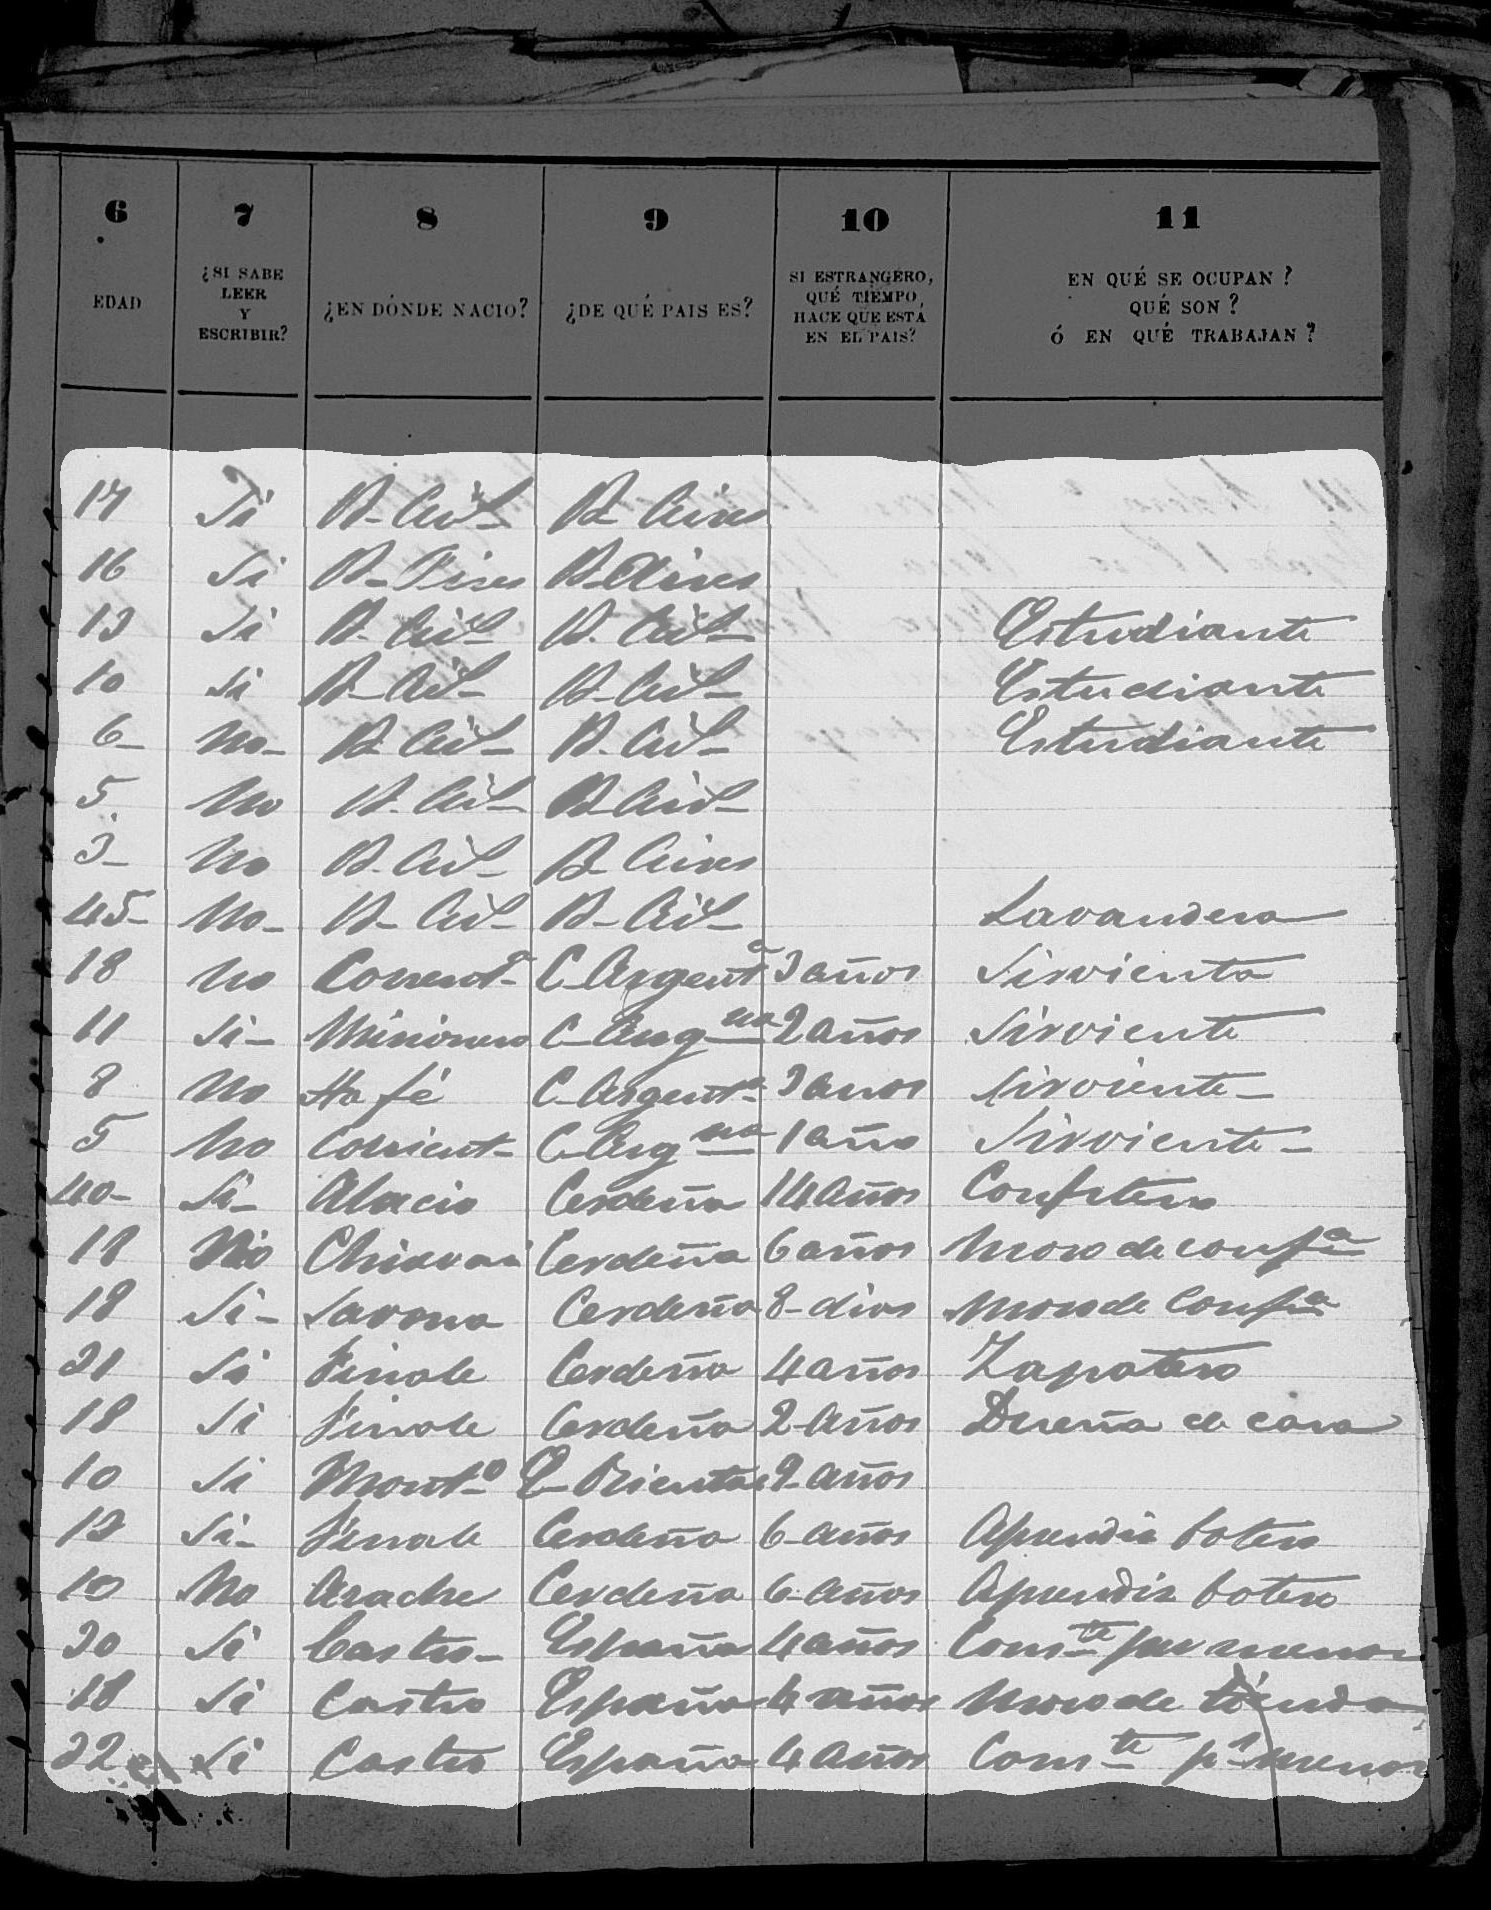 6 7 8 9 10 11
EDAD ¿SI SABE LEER Y ESCRIBIR? ¿EN DÓNDE NACIO? ¿DE QUÉ PAIS ES? SI ESTRANGERO, QUÉ TIEMPO HACE QUE ESTÁ EN EL PAIS? EN QUÉ SE OCUPAN? QUÉ SON? Ó EN QUÉ TRABAJAN?
17 Si B- Ais- B- Aires
16 Si B- Aires B- Aires
13 Si B- Ais- B. Ais- Estudiante
10 Si B- Ais- B- Ais- Estudiante
6- No- B- Ais- B- Ais- Estudiante
5 No B. Ais- B- Ais-
3- No B- Ais- B- Aires
45- No- B- Ais- B- Ais- Lavandera
18 No Corrent- C- Argenta 3 años Sirvienta
11 Si- Misiones C- Argna 2 años Sirviente
8 No Sta fé C- Argenta 3 anos Sirviente-
5 No Corrient- C- Argna 1 año Sirviente-
40- Si- Alacio Cerdeña 14 años Confitero
18 No Chiavari Cerdeña 6 años Moso de confa
18 Si- Savona Cerdeña 8- dias Moso de Confa
21 Si Finale Cerdeña 4 años Zapatero
18 Si Finale Cerdeña 2 años Dueña de casa
10 Si Monto E- Oriental 9- años
12 Si- Finale Cerdeña 6- años Aprendiz botero
10 No Cerdeña 6- años Aprendiz botero
20 Si Castro- España 4 años Comte por menor
18 Si Castro España 4 años Moso de tienda
22 Si Castro España 4 años Comte pr menor